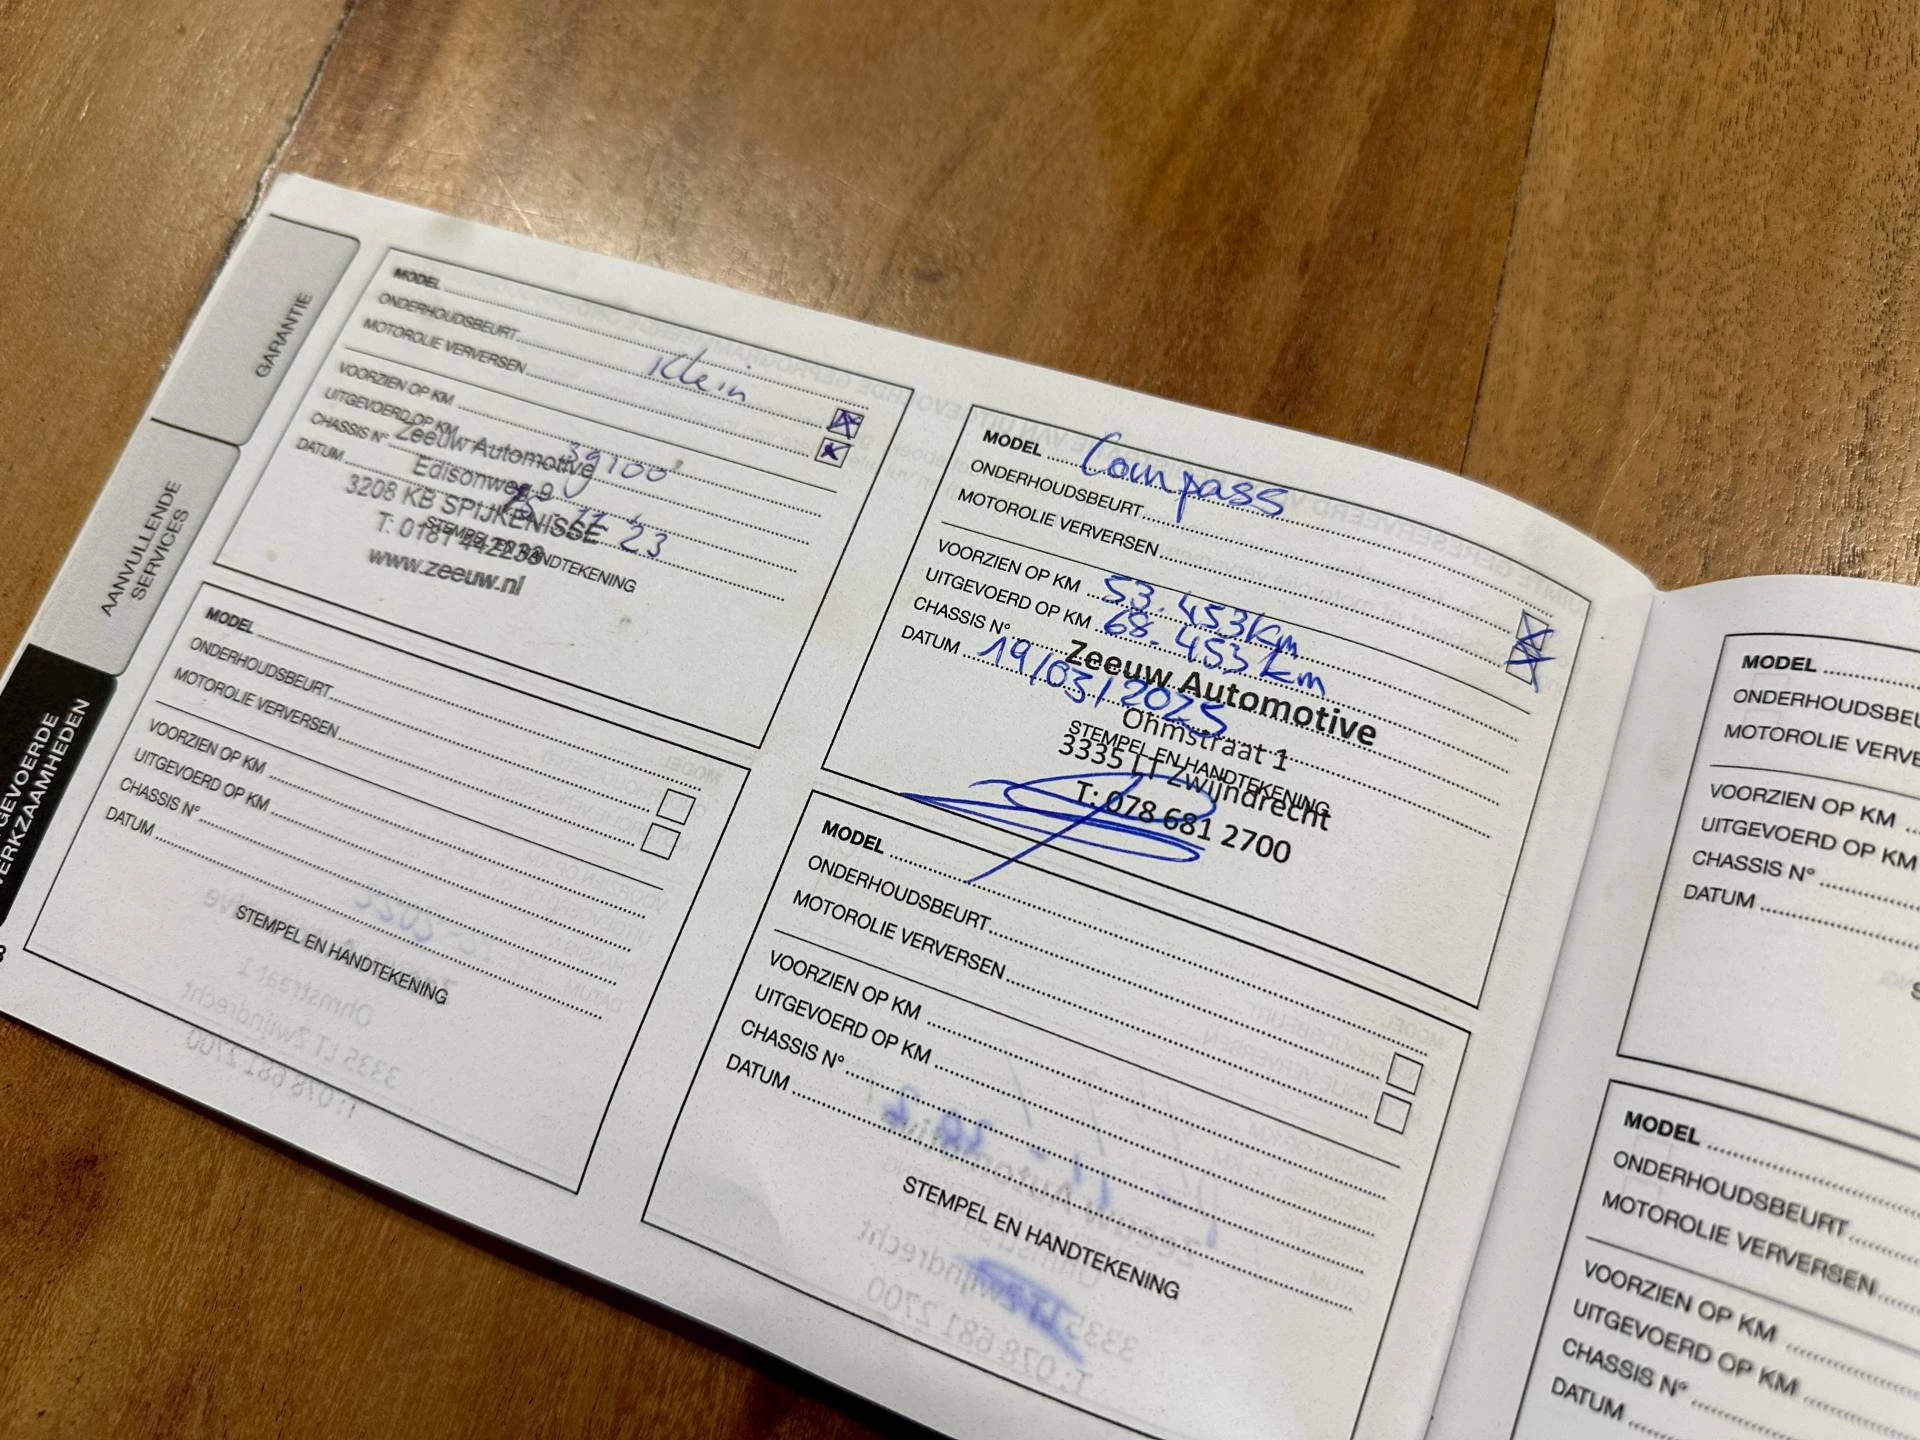 GARANTIE
AANVULLENDE
SERVICES
GEVOERDE
ERKZAAMHEDEN
MODEL
ONDERHOUDSBEURT
MOTOROLIE VERVERSEN
Klein
VOORZIEN OP KM
UITGEVOERD OP KM
39100
CHASSIS N°
DATUM
11 23
Zeeuw Automotive
Edisonweg 9
3208 KB SPIJKENISSE
T: 0181 442233
www.zeeuw.nl
STEMPEL EN HANDTEKENING
MODEL
ONDERHOUDSBEURT
MOTOROLIE VERVERSEN
VOORZIEN OP KM
UITGEVOERD OP KM
CHASSIS N°
DATUM
STEMPEL EN HANDTEKENING
MODEL Compass
ONDERHOUDSBEURT
MOTOROLIE VERVERSEN
VOORZIEN OP KM 53.453km
UITGEVOERD OP KM 68.453km
CHASSIS N°
DATUM 19/03/2025
Zeeuw Automotive
Ohmstraat 1
3335 LT Zwijndrecht
T: 078 681 2700
STEMPEL EN HANDTEKENING
MODEL
ONDERHOUDSBEURT
MOTOROLIE VERVERSEN
VOORZIEN OP KM
UITGEVOERD OP KM
CHASSIS N°
DATUM
STEMPEL EN HANDTEKENING
MODEL
ONDERHOUDSBEU
MOTOROLIE VERVE
VOORZIEN OP KM
UITGEVOERD OP KM
CHASSIS N°
DATUM
MODEL
ONDERHOUDSBEURT
MOTOROLIE VERVERSEN
VOORZIEN OP KM
UITGEVOERD OP KM
CHASSIS N°
DATUM